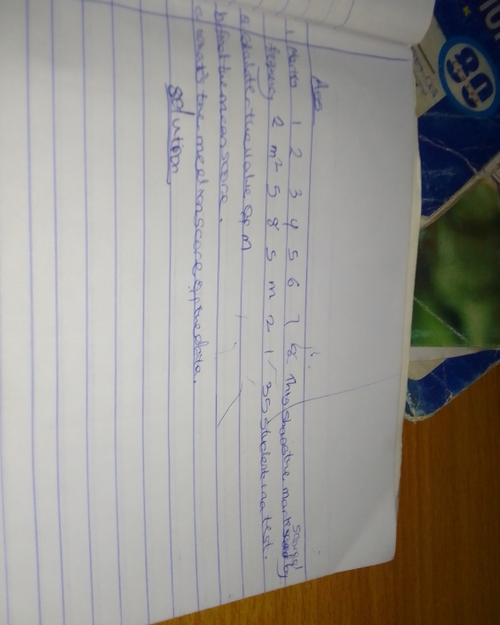 Ans
1 Marks 1 2 3 4 5 6 7 8 This shows the marks scored by
frequency 2 m² 5 8 5 m 2 1 35 students in a test.
a calculate the value of M
b find the mean score.
c what's the median score of the data.
Solution
80